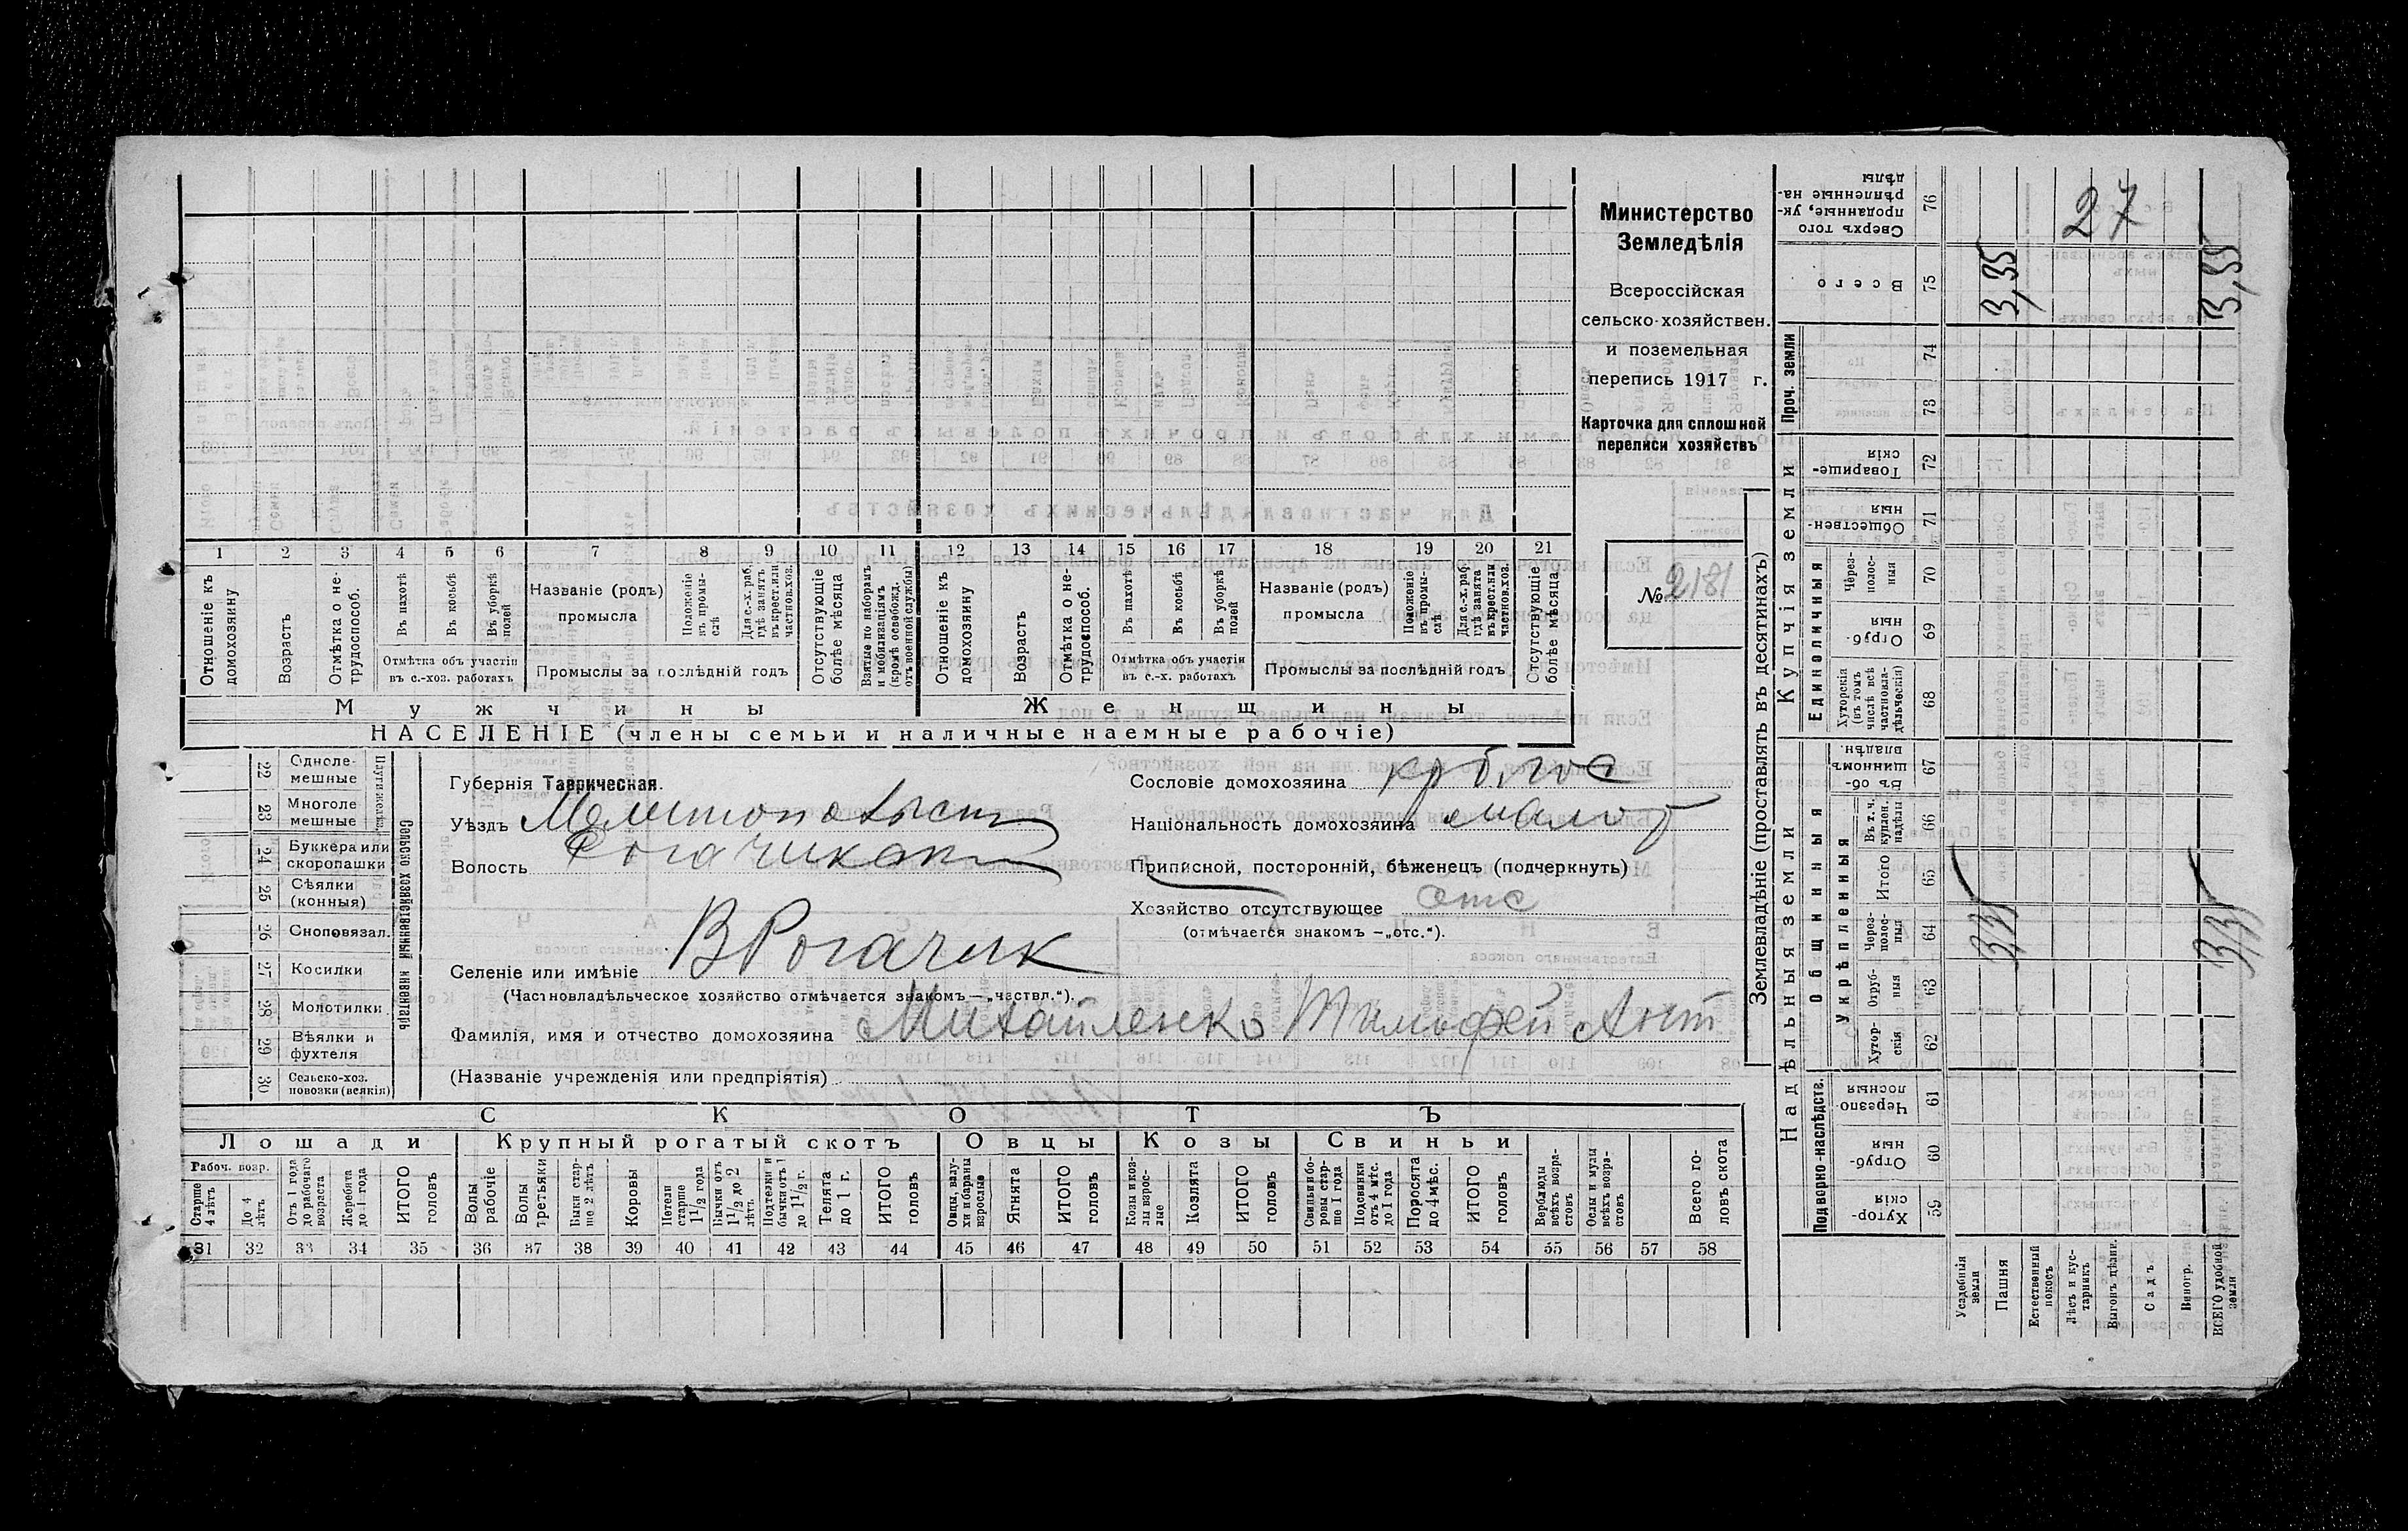 Министерство
Земледѣлія
Всероссійская
сельско-хозяйствен.
и поземельная
перепись 1917 г.
Карточка для сплошной
переписи хозяйствъ
№ 2181
1 2 3 4 5 6 7 8 9 10 11 12 13 14 15 16 17 18 19 20 21
Отношеніе къ домохозяину
Возрастъ
Отмѣтка о нетрудоспособ.
Въ пахотѣ
Въ косьбѣ
Въ уборкѣ полей
Отмѣтка объ участіи въ с.-хоз. работахъ
Названіе (родъ) промысла
Положеніе въ промыслѣ
Для с.-х. раб. гдѣ занятъ въ крест. или частнов. хоз.
Промыслы за послѣдній годъ
Отсутствующіе болѣе мѣсяца
Взятые по наборамъ и мобилизаціямъ (кромѣ освобожд. отъ военной службы)
Отношеніе къ домохозяину
Возрастъ
Отмѣтка о нетрудоспособ.
Въ пахотѣ
Въ косьбѣ
Въ уборкѣ полей
Отмѣтка объ участіи въ с.-х. работахъ
Названіе (родъ) промысла
Положеніе въ промыслѣ
Для с.-х. раб. гдѣ занята въ крест. или частнов. хоз.
Промыслы за послѣдній годъ
Отсутствующіе болѣе мѣсяца
Мужчины
Женщины
НАСЕЛЕНІЕ (члены семьи и наличные наемные рабочіе)
Сельско-хозяйственный инвентарь
22 Одноле-мешные
23 Многоле мешные
24 Буккера или скоропашки
25 Сѣялки (конныя)
26 Сноповязал.
27 Косилки
28 Молотилки
29 Вѣялки и фухтеля
30 Сельско-хоз. повозки (всякія)
Губернія Таврическая.
Уѣздъ
Волость
Селеніе или имѣніе В Рогачик
(Частновладѣльческое хозяйство отмѣчается знакомъ — „частвл.“).
Фамилія, имя и отчество домохозяина Михайленко Тимофей Ант
(Названіе учрежденія или предпріятія)
Сословіе домохозяина
Національность домохозяина малор
Приписной, посторонній, бѣженецъ (подчеркнуть)
Хозяйство отсутствующее отс
(отмѣчается знакомъ — „отс.“).
СКОТЪ
Лошади
Крупный рогатый скотъ
Овцы
Козы
Свиньи
Рабоч. возр.
Старше 4 лѣтъ
До 4 лѣтъ
Отъ 1 года до рабочаго возраста
Жеребята до 1 года
ИТОГО головъ
Волы рабочіе
Волы третьяки
Быки старше 2 лѣтъ
Коровы
Нетели старше 1 1/2 года
Бычки отъ 1 1/2 до 2 лѣтъ
Подтелки и бычки отъ 1 до 1 1/2 г.
Телята до 1 г.
ИТОГО головъ
Овцы, валухи и бараны взрослые
Ягнята
ИТОГО головъ
Козы и козлы взрослые
Козлята
ИТОГО головъ
Свиньи и боровы старше 1 года
Подсвинки отъ 4 мѣс. до 1 года
Поросята до 4 мѣс.
ИТОГО головъ
Верблюды всѣхъ возрастовъ
Ослы и мулы всѣхъ возрастовъ
Всего головъ скота
31 32 33 34 35 36 37 38 39 40 41 42 43 44 45 46 47 48 49 50 51 52 53 54 55 56 57 58
Землевладѣніе (проставлять въ десятинахъ)
Купчія земли
Надѣльныя земли
Сверхъ того проданные, укрѣпленные надѣлы 76
Всего 75
Проч. земли
74
73
Товарищескія 72
Общественныя 71
Единоличныя
Черезполосныя 70
Отрубныя 69
Хуторскія (въ томъ числѣ всѣ частновладѣльческія) 68
Общинныя
Въ общинномъ владѣн. 67
Укрѣпленныя
Въ т. ч. куплен. надѣлы 66
Итого 65
Черезполосныя 64
Отрубныя 63
Хуторскія 62
Подворно-наслѣдств.
Черезполосныя 61
Отрубныя 60
Хуторскія 59
Усадебныя земли
Пашня
Естественный покосъ
Лѣсъ и кустарникъ
Выгонъ цѣлин.
Садъ
Виногр.
ВСЕГО удобной земли
27
3,35
3,35